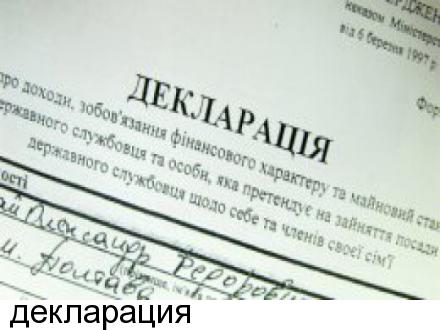 ЕРДЖЕН
наказом Міністерс
від 6 березня 1997 р
Фор
ДЕКЛАРАЦІЯ
про доходи, зобов'язання фінансового характеру та майновий стан
державного службовця та особи, яка претендує на зайняття посади
державного службовця щодо себе та членів своєї сім'ї
ості
Олександр Федорович
м. Полтава
декларация